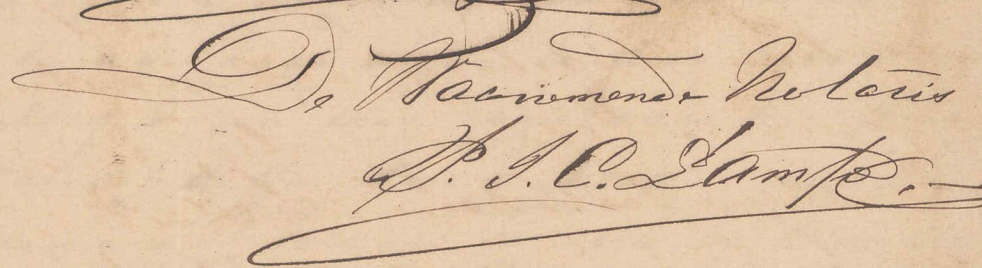 De Waarnemende Notaris
P. J. C. Lampe.